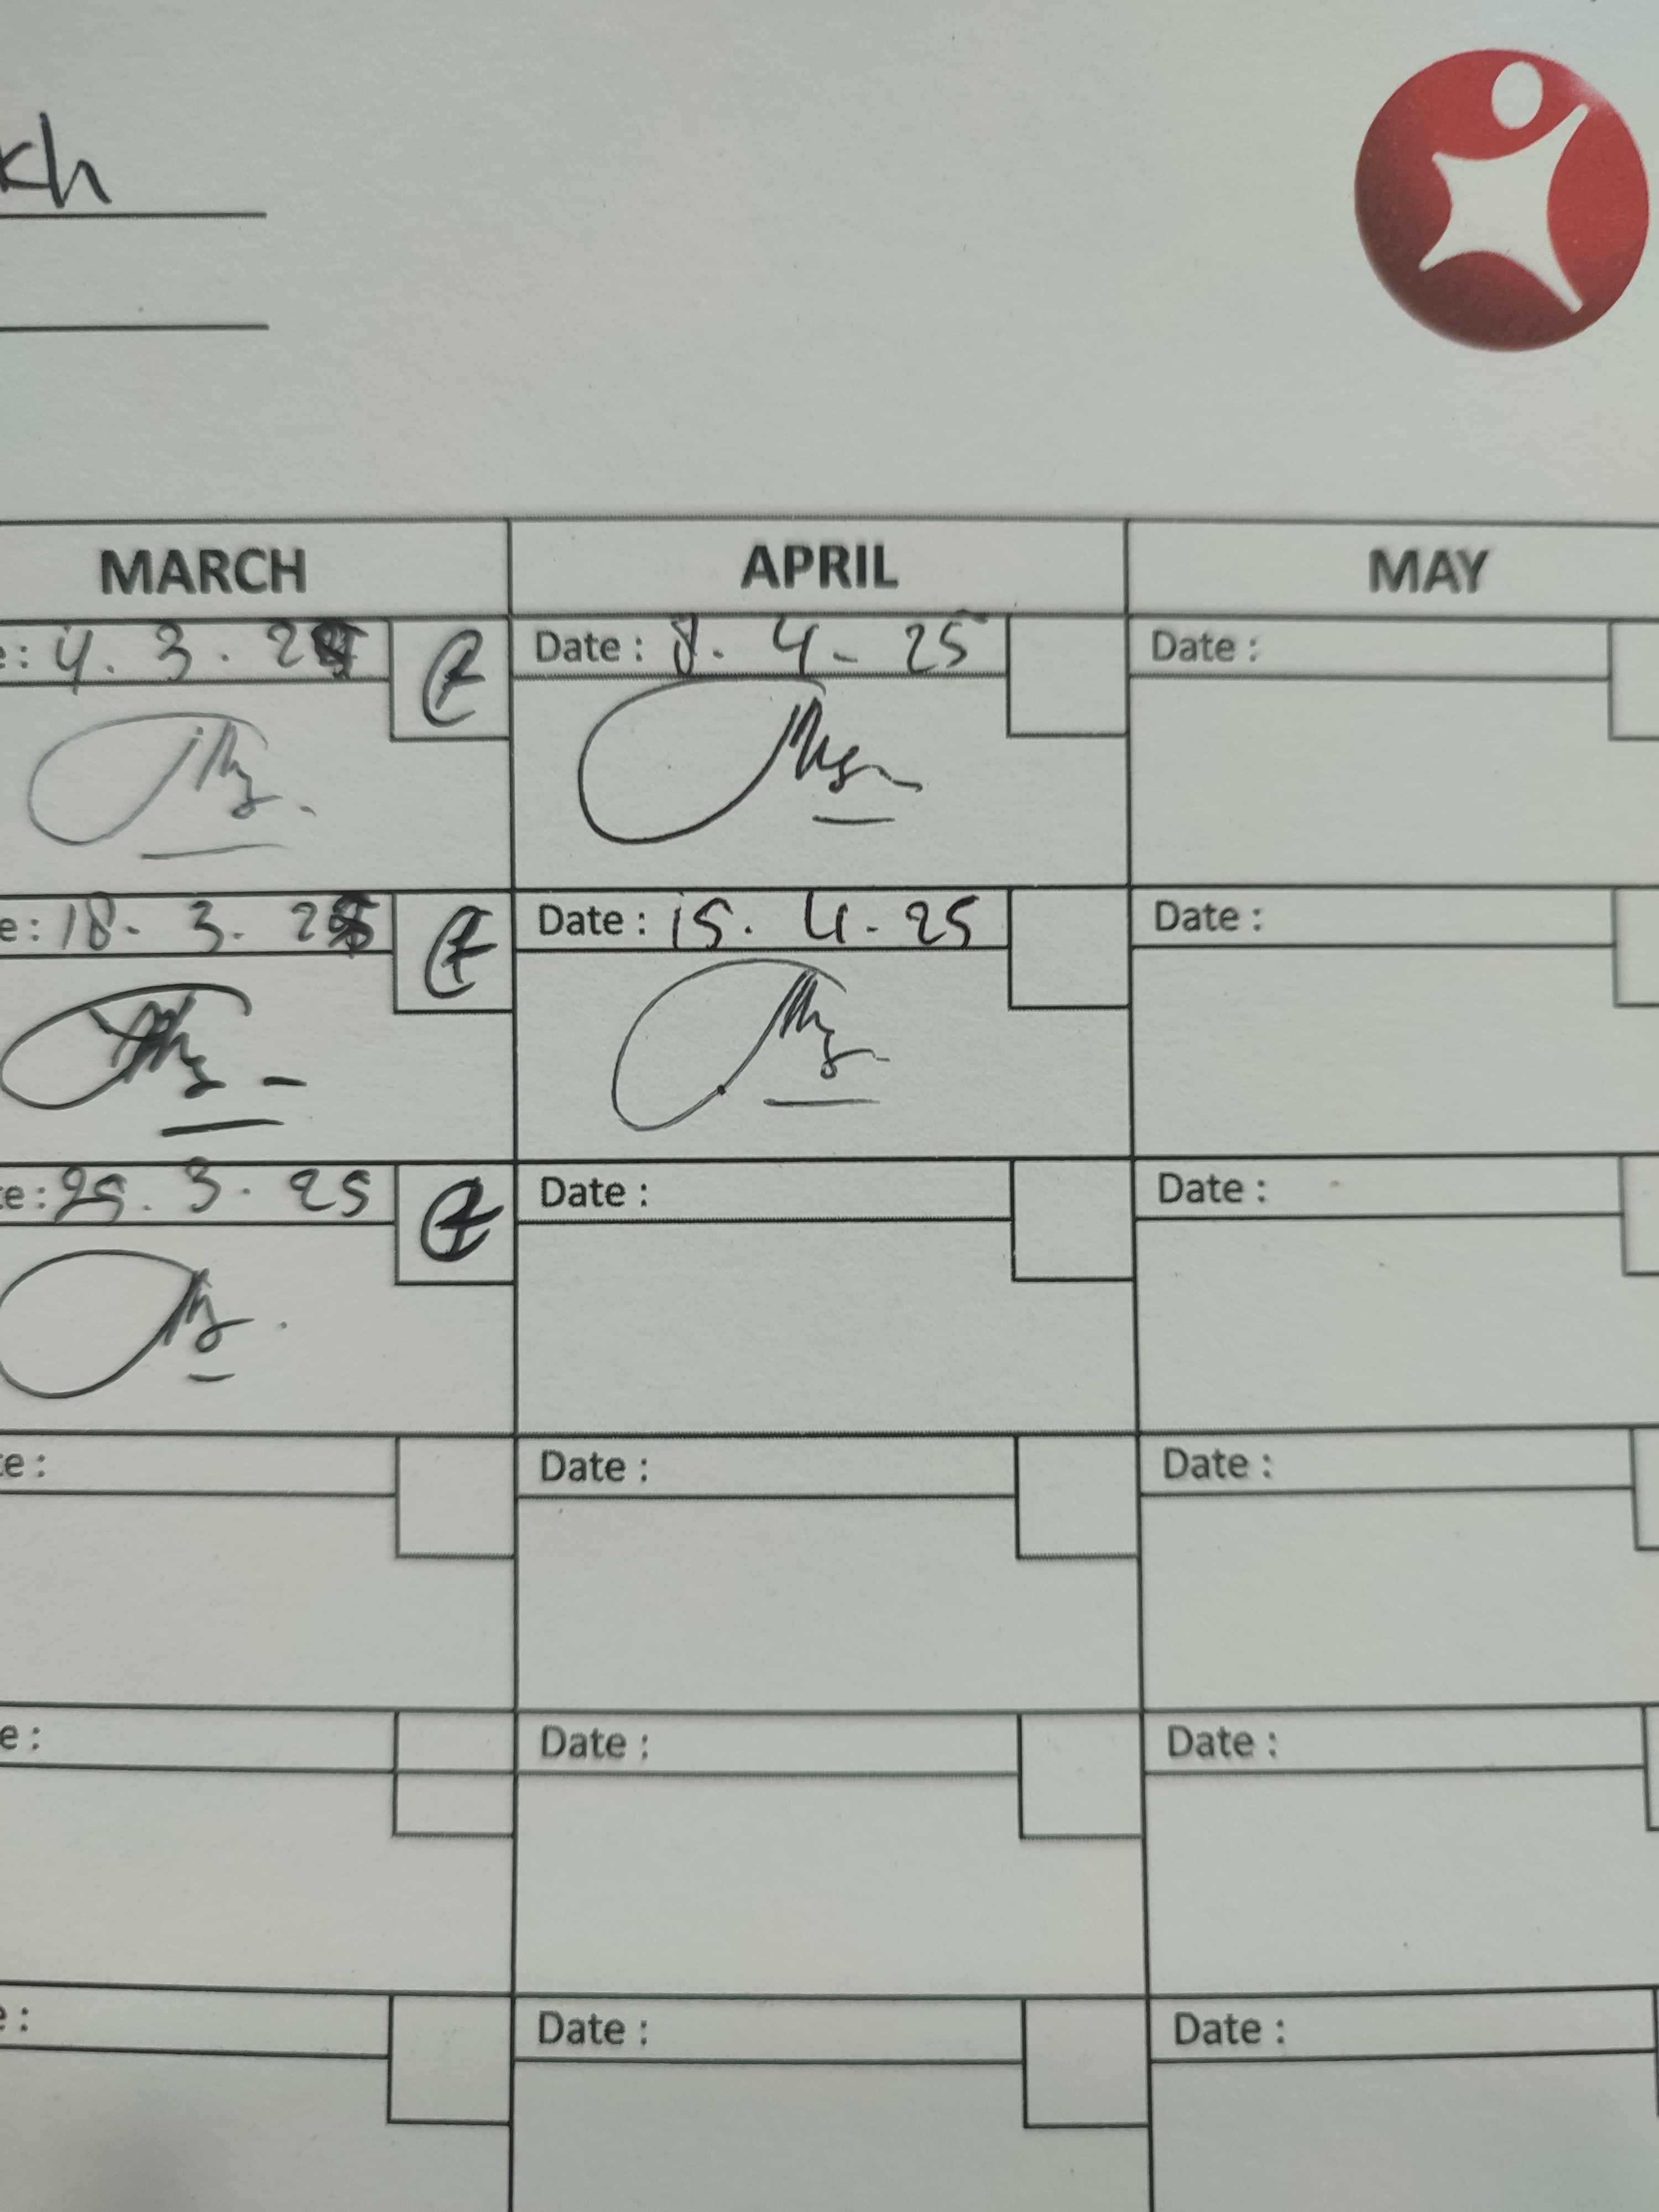 kh
MARCH APRIL MAY
e: 4. 3. 25 Date : 8. 4- 25 Date :
e: 18. 3. 25 Date : 15. 4. 25 Date :
te: 25. 3. 25 Date : Date :
te : Date : Date :
e : Date : Date :
e : Date : Date :